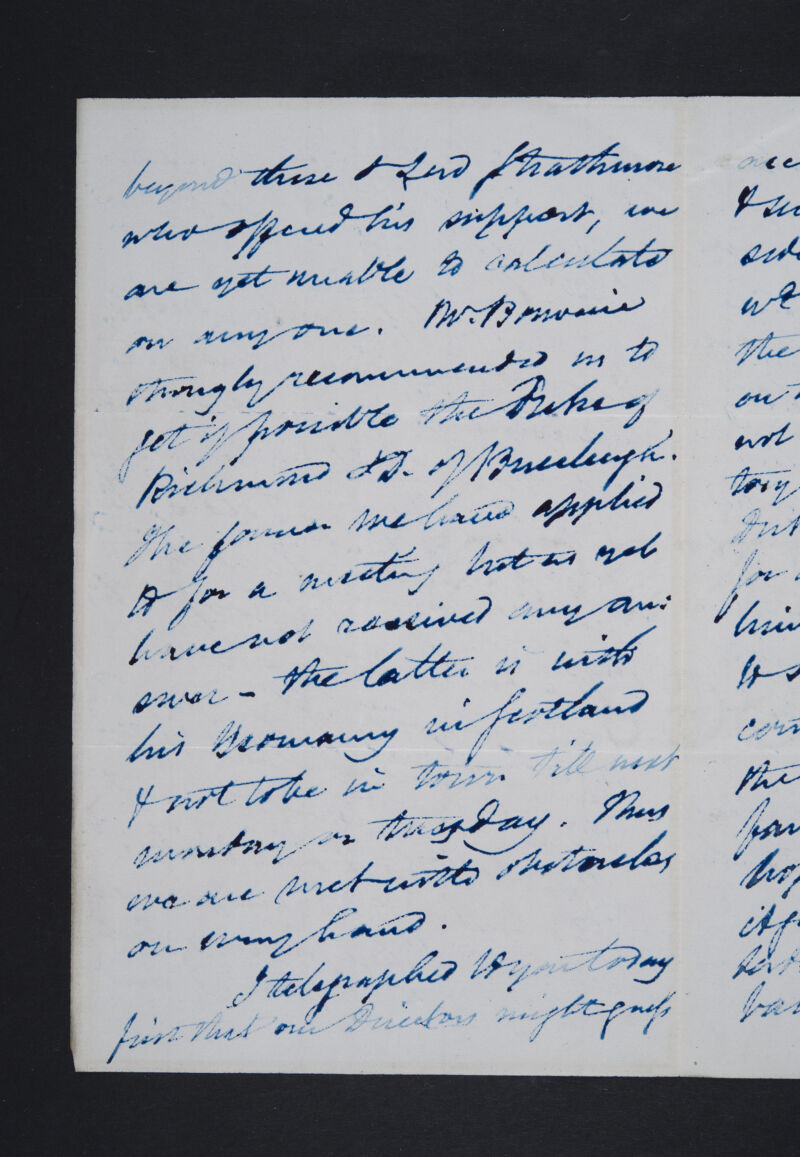 beyond these & Lord Strathmore
who offered his support, we
are yet unable to calculate
on any one. Mr.
strongly recommended us to
get if possible the Duke of
Richmond & D. of Buccleugh.
The former we have applied
to for a meeting but as yet
have not received any an:
swer - the latter is with
his Yeomanry in Scotland
& not to be in town till next
monday or tuesday. Thus
we are met with obstacles
on every hand.
I telegraphed to you today
first that our Directors might
the
not
for